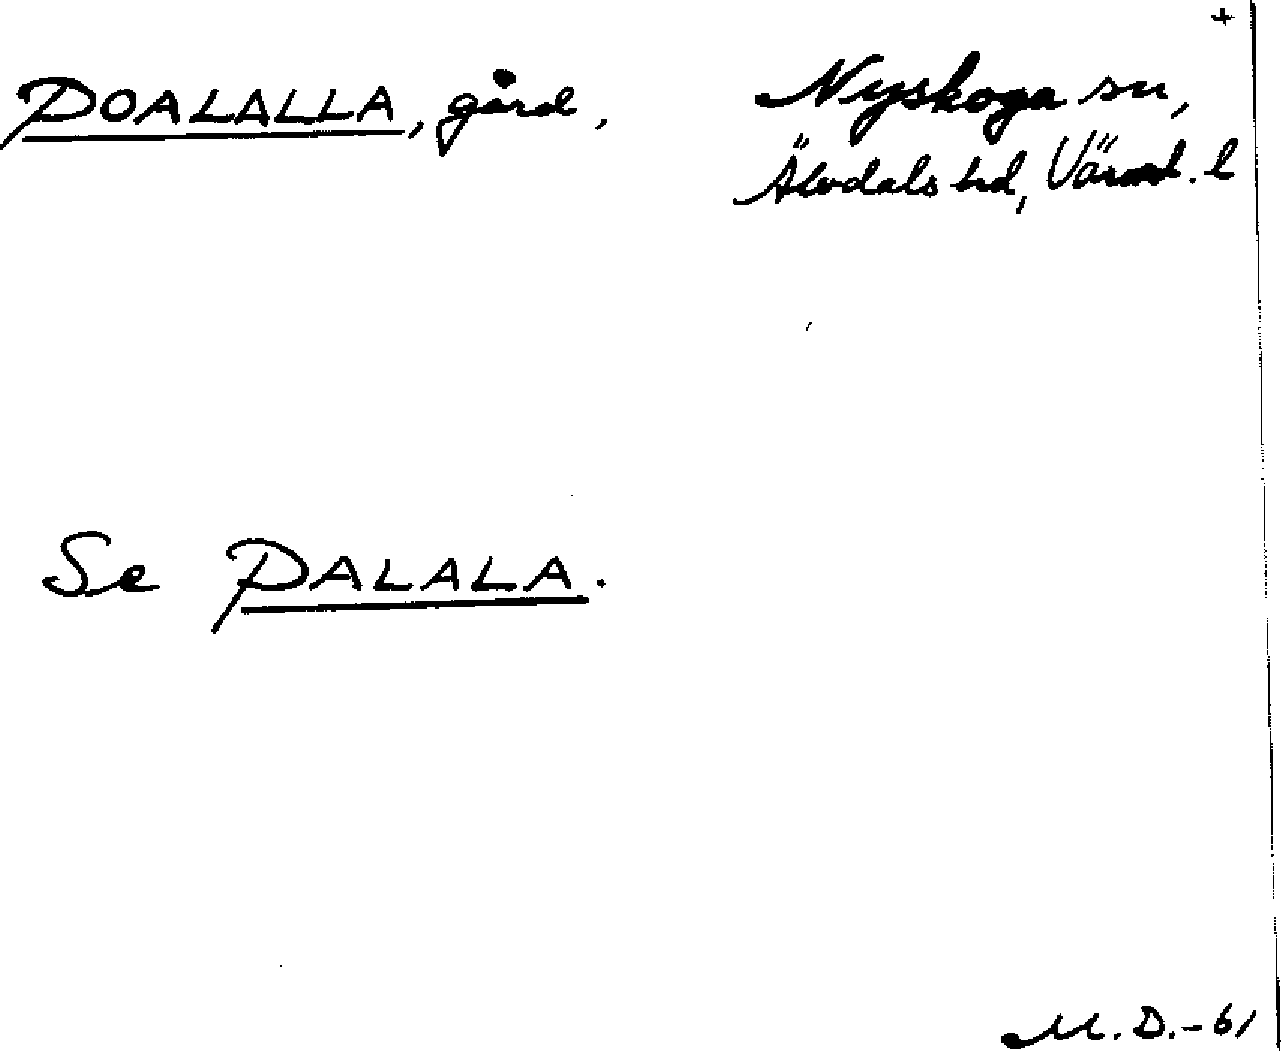 POALALLA, gård, Nyskoga sn,
Älvdals hd, Värml. l
Se PALALA.
M. D. - 61